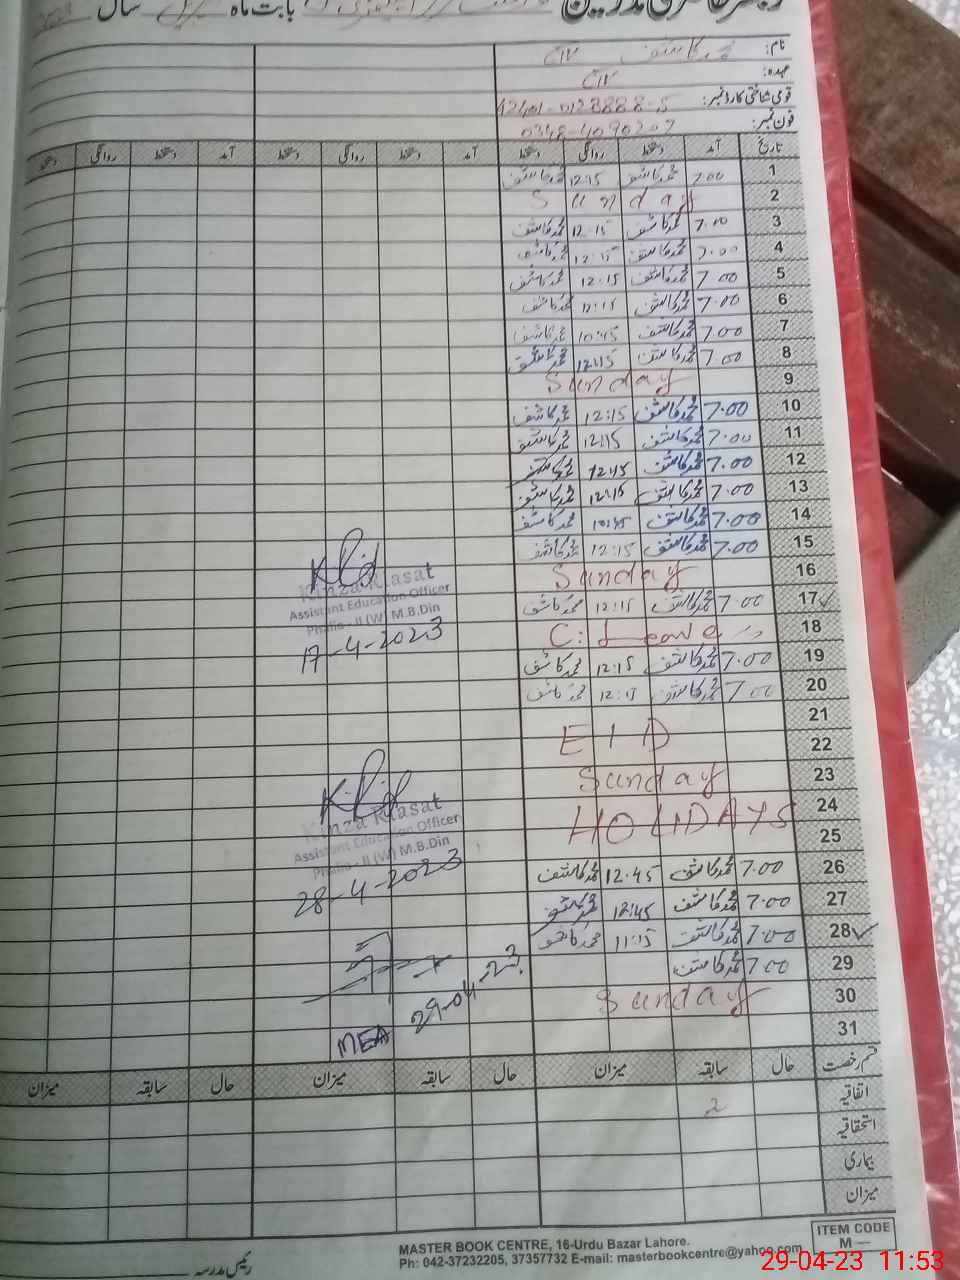 بابت ماہ سال
نام: محمد کاشف
عہدہ:
قومی شناختی کارڈ نمبر: 42401-0128888-5
فون نمبر: 0348-4090207
تاریخ آمد دستخط روانگی دستخط آمد دستخط روانگی دستخط آمد دستخط روانگی دستخط
1 7.00 محمد کاشف 12:15 محمد کاشف
2 Sunday
3 7.00 محمد کاشف 12:15 محمد کاشف
4 7.00 محمد کاشف 12:15 محمد کاشف
5 7.00 محمد کاشف 12:15 محمد کاشف
6 7.00 محمد کاشف 12:15 محمد کاشف
7 7.00 محمد کاشف 10:45 محمد کاشف
8 7.00 محمد کاشف 12:15 محمد کاشف
9 Sunday
10 7.00 محمد کاشف 12:15 محمد کاشف
11 7.00 محمد کاشف 12:15 محمد کاشف
12 7.00 محمد کاشف 12:15 محمد کاشف
13 7.00 محمد کاشف 12:15 محمد کاشف
14 7.00 محمد کاشف 10:45 محمد کاشف
15 7.00 محمد کاشف 12:15 محمد کاشف
16 Sunday
17 7.00 محمد کاشف 12:15 محمد کاشف
18 C: Leave
19 7.00 محمد کاشف 12:15 محمد کاشف
20 7.00 محمد کاشف 12:15 محمد کاشف
21
22 EID
23 Sunday
24 HOLIDAYS
25
26 7.00 محمد کاشف 12:45 محمد کاشف
27 7.00 محمد کاشف 12:45 محمد کاشف
28 7.00 محمد کاشف 11:15 محمد کاشف
29 7.00 محمد کاشف
30 Sunday
31
Kinza Riasat
Assistant Education Officer
Phalia - II (W) M.B.Din
17-4-2023
Kinza Riasat
Assistant Education Officer
Phalia - II (W) M.B.Din
28-4-2023
MEA 29-04-23
قسم رخصت حال سابقہ میزان حال سابقہ میزان حال سابقہ میزان
اتفاقیہ 2
استحقاقیہ
بیماری
میزان
رئیس مدرسہ
MASTER BOOK CENTRE, 16-Urdu Bazar Lahore.
Ph: 042-37232205, 37357732 E-mail: masterbookcentre@yahoo.com
ITEM CODE
M —
29-04-23 11:53